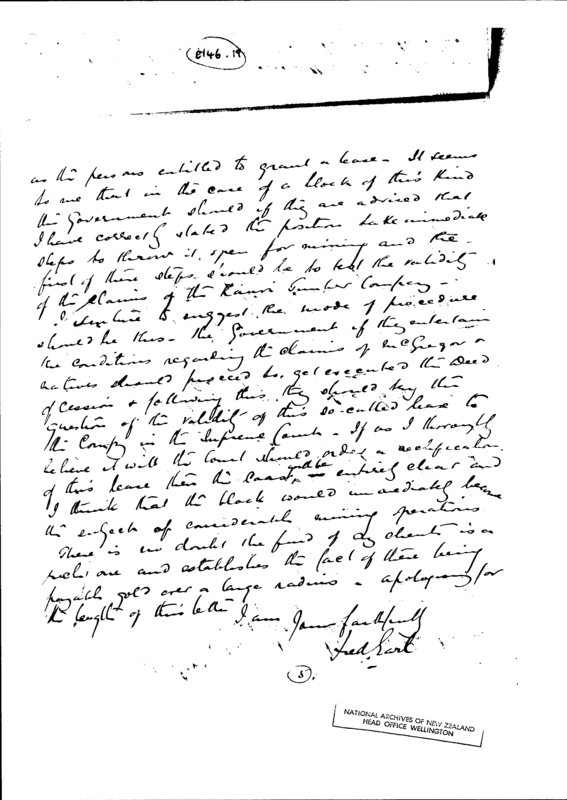 E146.19
as the persons entitled to grant a lease - It seems
to me that in the case of a block of this kind
the Government should if they are advised that
I have correctly stated the position take immediate
steps to throw it open for mining and the
first of these steps should be to test the validity
of the claims of the Kauri Timber Company -
I venture to suggest the mode of procedure
should be this - The Government if they entertain
the conditions regarding the claims of McGregor &
natives should proceed to get executed the Deed
of Cession & following this they should try the
question of the validity of this so-called lease to
the Company in the Supreme Court - If as I thoroughly
believe it will the Court should order a rectification
of this lease then the coast will be entirely clear and
I think that the block would immediately become
the subject of considerable mining operations
There is no doubt the find of my clients is a
rich one and establishes the fact of there being
payable gold over a large radius - apologising for
the length of this letter I am Yours faithfully
Fred Earl
5
NATIONAL ARCHIVES OF NEW ZEALAND
HEAD OFFICE WELLINGTON